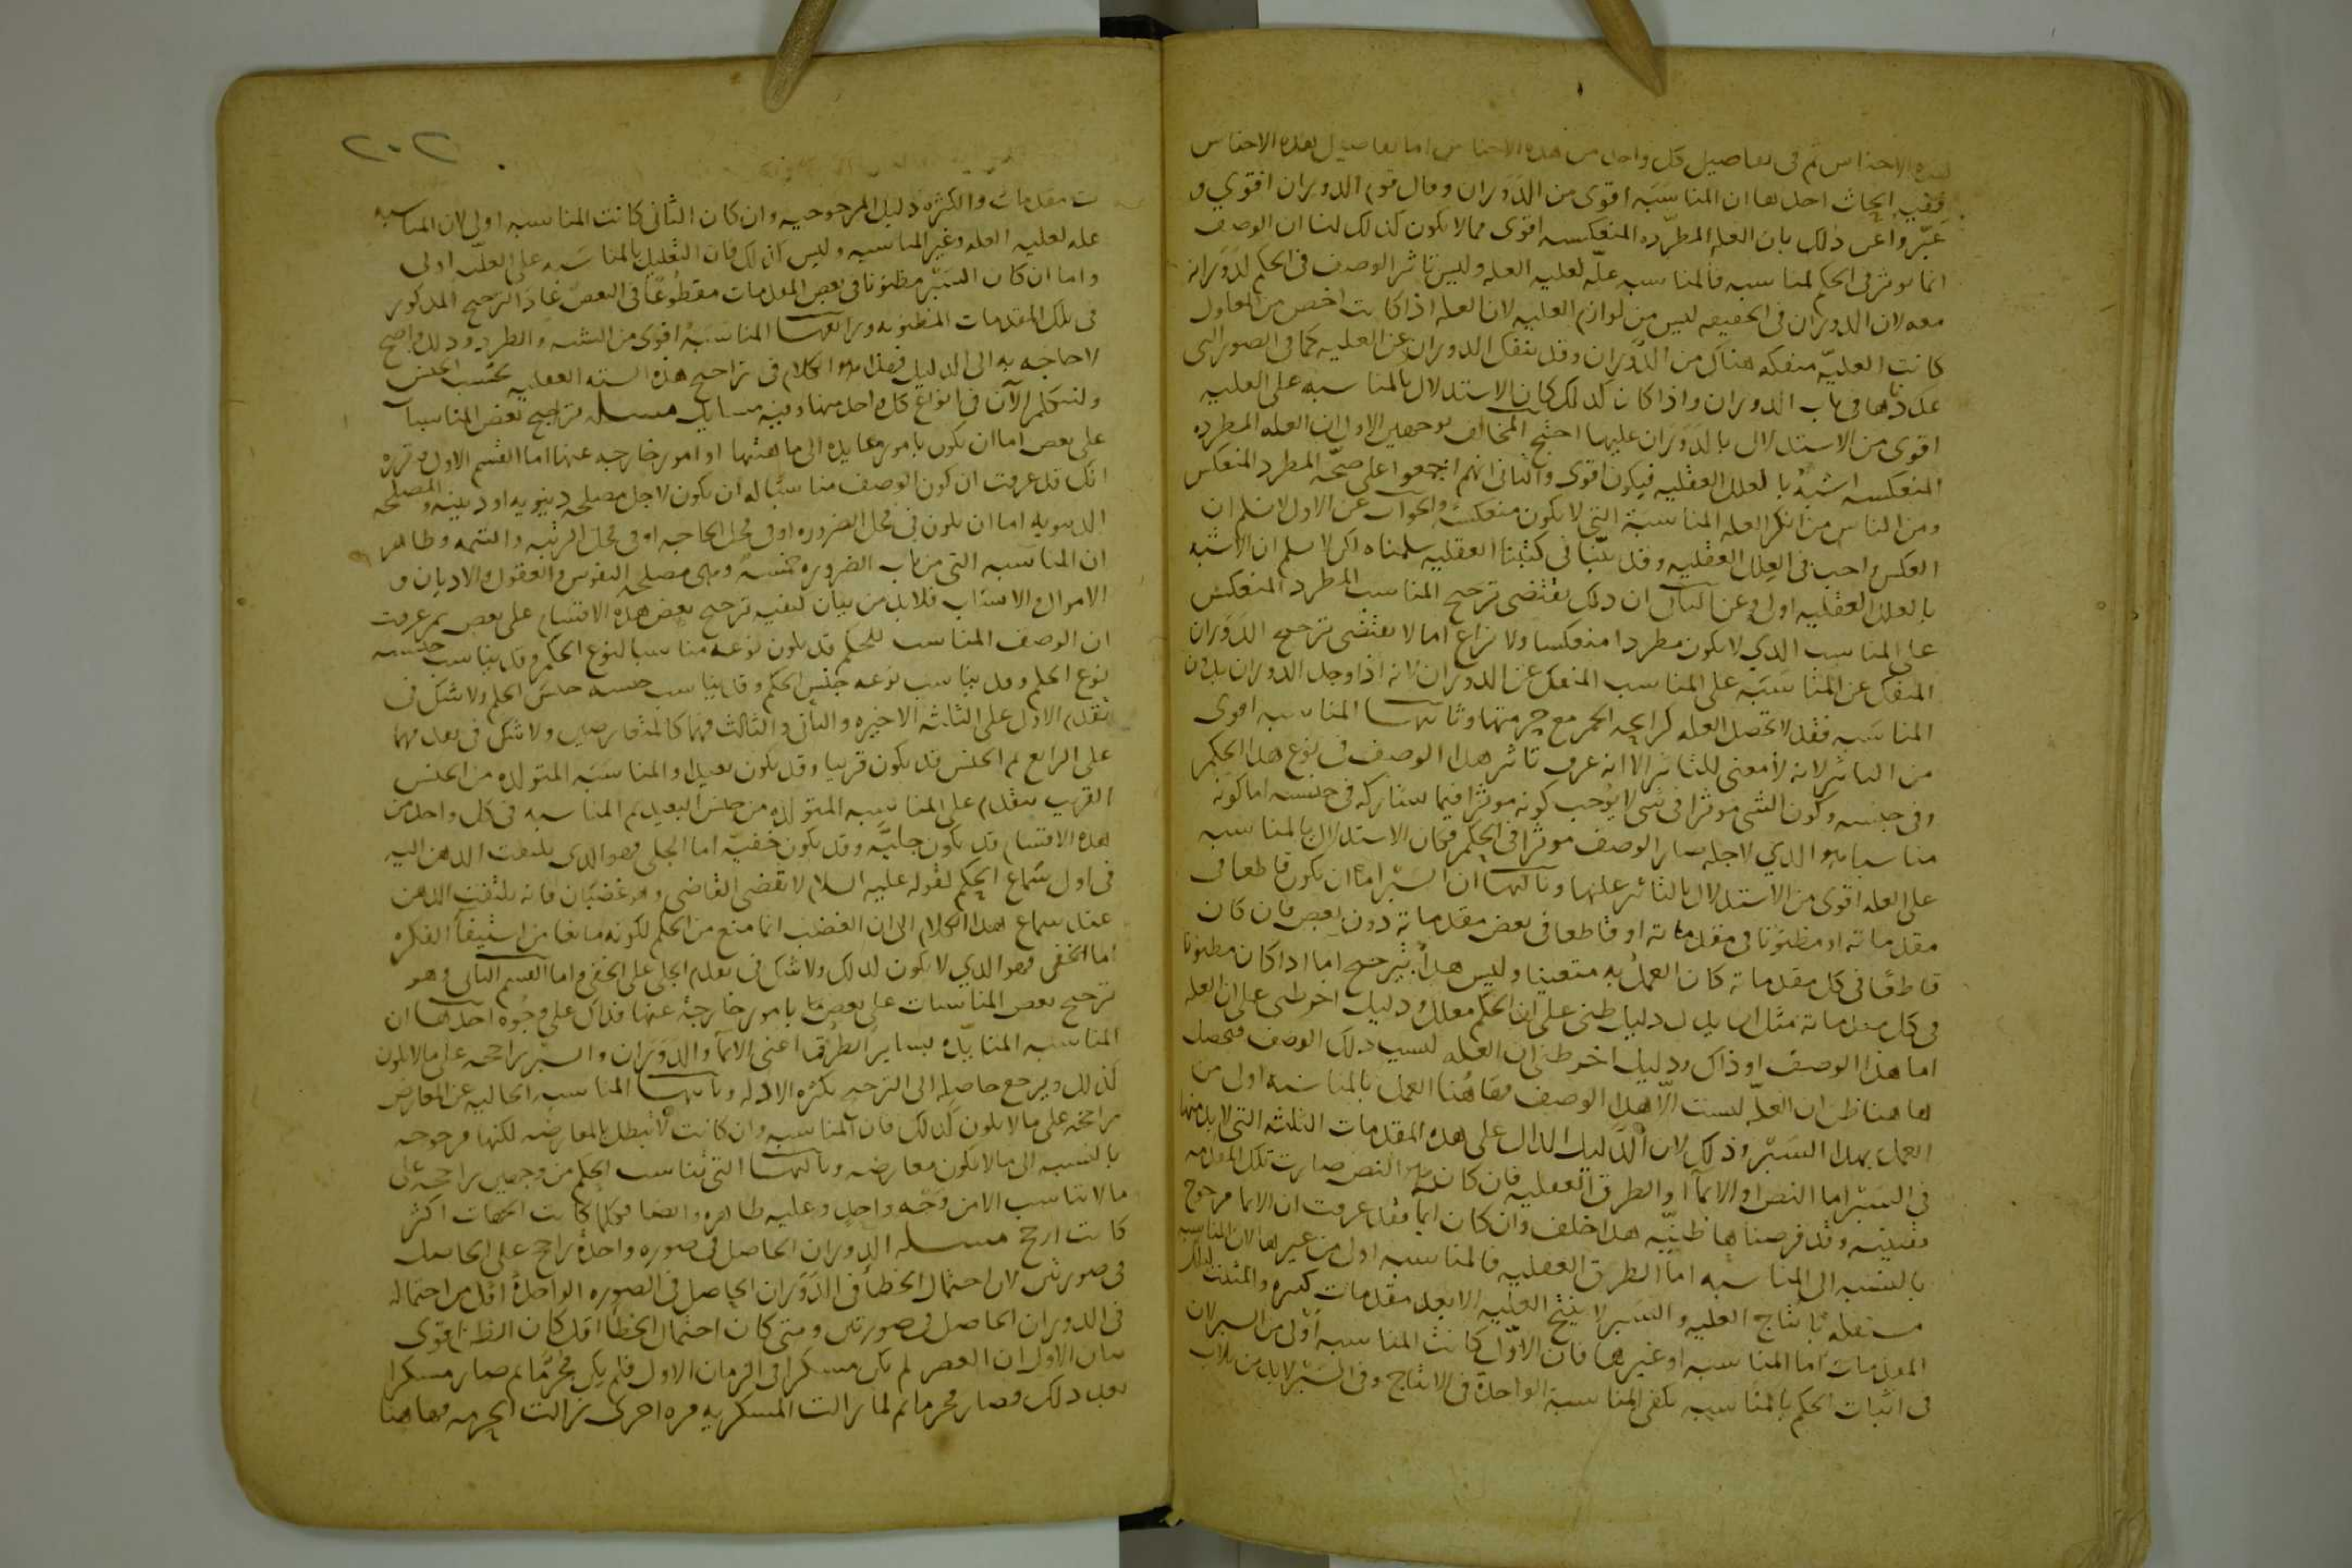 هذه الاجناس ثم فى تفاصيل كل واحد من هذه الاجناس اما تفاصيل هذه الاجناس
ففيه ابحاث احدها ان المناسبه اقوى من الدوران وقال قوم الدوران اقوي و
عبروا عن ذلك بان العله المطرده المنعكسه اقوى مما لا يكون كذلك لنا ان الوصف
انما يوثر فى الحكم لمناسبه فالمناسبه علة لعليه العله وليس تاثير الوصف فى الحكم لدورانه
معه لان الدوران فى الحقيقه ليس من لوازم العليه لان العله اذا كانت اخص من المعلول
كانت العلية منفكه هناك من الدوران وقد ينفك الدوران عن العليه كما فى الصور التى
عددناها فى باب الدوران واذا كان كذلك كان الاستدلال بالمناسبه على العليه
اقوى من الاستدلال بالدوران عليها احتج المخالف بوجهين الاول ان العله المطرده
المنعكسه اشبه بالعلل العقليه فيكون اقوى والثانى انهم اجمعوا على صحة المطرد المنعكس
ومن الناس من انكر العله المناسبة التي لا يكون منعكسة والجواب عن الاول لا نسلم ان
العكس واجب فى العلل العقليه وقد بينا فى كتبنا العقليه سلمناه لكن لا نسلم ان الاشبه
بالعلل العقليه اولى وعن الثانى ان ذلك يقتضى ترجيح المناسب المطرد المنعكس
على المناسب الذي لا يكون مطردا منعكسا ولا نزاع اما لا يقتضى ترجيح الدوران
المنفك عن المناسبة على المناسب المنفك عن الدوران لانه اذا وجد الدوران بدون
المناسبه فقد لا تحصل العله كرائحه الخمر مع حرمتها وثانيها المناسبه اقوى
من التاثير لانه لا معنى للتاثير الا انه عرف تاثير هذا الوصف فى نوع هذا الحكم
وفى جنسه وكون الشى موثرا فى شى لا يوجب كونه موثرا فيما يشاركه فى جنسه اما كونه
مناسبا فهو الذي لاجله صار الوصف موثرا فى الحكم فكان الاستدلال بالمناسبه
على العله اقوى من الاستدلال بالتاثير عليها وثالثها ان السبر اما ان يكون قاطعا فى
مقدماته او مظنونا فى مقدماته او قاطعا فى بعض مقدماته دون بعض فان كان
قاطعا فى كل مقدماته كان العمل به متعينا وليس هذا بترجيح اما اذا كان مظنونا
فى كل مقدماته مثل ان يدل دليل ظنى على ان الحكم معلل ودليل اخر ظنى على ان العله
اما هذا الوصف او ذاك ودليل اخر ظنى ان العله ليست ذلك الوصف فيحصل
هاهنا ظن ان العله ليست الا هذا الوصف فهاهنا العمل بالمناسبه اولى من
العمل بهذا السبر وذلك لان الدليل الدال على هذه المقدمات الثلثه التي لابد منها
فى السبر اما النص او الايما او الطرق العقليه فان كان هو النص صارت تلك المقدمه
يقينيه وقد فرضناها ظنية هذا خلف وان كان ايما فقد عرفت ان الايما مرجوح
بالنسبه الى المناسبه اما الطرق العقليه فالمناسبه اولى من غيرها لان المناسبه
مستقله بانتاج العليه والسبر لا ينتج العليه الا بعد مقدمات كثيره والمثبت لتلك
المقدمات اما المناسبه او غيرها فان الاول كانت المناسبه اولى من السبر لان
فى اثبات الحكم بالمناسبه يكفى المناسبة الواحدة فى الانتاج وفى السبر لابد من ثلاث
٢٠٢
ت مقدمات والكثره دليل المرجوحيه وان كان الثانى كانت المناسبه اولى لان المناسبه
عله لعليه العله وغير المناسبه وليس كذلك فان التعليل بالمناسبه على العلة اولى
واما ان كان السبر مظنونا فى بعض المقدمات مقطوعا فى البعض عاد الترجيح المذكور
فى تلك المقدمات المظنونه ورابعها المناسبة اقوى من الشبه والطرد وذلك واضح
لا حاجه به الى الدليل فهذا هو الكلام فى تراجيح هذه السته العقليه بحسب الجنس
ولنتكلم الآن فى انواع كل واحد منها وفيه مسايل مسله تراجيح بعض المناسبات
على بعض اما ان يكون بامور عايده الى ماهيتها او امور خارجه عنها اما القسم الاول فتقرره
انك قد عرفت ان كون الوصف مناسبا له ان يكون لاجل مصلحه دنيويه او دينيه والمصلحه
الدنيويه اما ان يكون فى محل الضروره او فى محل الحاجه او فى محل الزينه والتتمه وظاهر
ان المناسبه التى من باب الضروره خمسة وهى مصلحه النفوس والعقول والاديان و
الاموال والانساب فلابد من بيان كيفيه ترجيح بعض هذه الاقسام على بعض ثم عرفت
ان الوصف المناسب للحكم قد يكون نوعه مناسبا لنوع الحكم وقد يناسب جنسه
نوع الحكم وقد يناسب نوعه جنس الحكم وقد يناسب جنسه جنس الحكم ولا شك فى
تقدم الاول على الثلثه الاخيره والثانى والثالث فهما كالمتعارضين ولا شك فى تقدمهما
على الرابع ثم الجنس قد يكون قريبا وقد يكون بعيدا والمناسبه المتولده من الجنس
القريب متقدم على المناسبه المتولده من الجنس البعيد ثم المناسبه فى كل واحد من
هذه الاقسام قد يكون جلية وقد يكون خفية اما الجلى فهو الذى يلتفت الذهن اليه
فى اول سماع الحكم لقوله عليه السلام لا يقضى القاضى وهو غضبان فانه يلتفت الذهن
عند سماع هذا الكلام الى ان الغضب انما منع من الحكم لكونه مانعا من استيفا الفكره
اما الخفى فهو الذي لا يكون كذلك ولا شك فى تقدم الجلى على الخفى واما القسم الثانى وهو
ترجيح بعض المناسبات على بعضها بامور خارجة عنها فذلك على وجوه احدها ان
المناسبه المتايده بساير الطرق اعنى الايما والدوران والسبر راجحه على ما لا يكون
كذلك ويرجع حاصله الى الترجيح بكثره الادله وثانيها المناسبه الخاليه عن المعارض
راجحه على ما لا يكون كذلك فان المناسبه وان كانت لا تبطل بالمعارضه لكنها مرجوحه
بالنسبه الى ما لا يكون معارضه وثالثها التى تناسب الحكم من وجهين راجحه على
ما لا تناسب الا من وجه واحد وعليه ظاهره وايضا فكلما كانت الجهات اكثر
كانت ارجح مسله الدوران الحاصل فى صوره واحدة راجح على الحاصل
فى صورتين لان احتمال الخطأ فى الدوران الحاصل فى الصوره الواحدة اقل من احتماله
فى الدوران الحاصل فى صورتين ومتى كان احتمال الخطأ اقل كان الظن اقوى
بيان الاول ان العصر لم يكن مسكرا فى الزمان الاول فلم يكن محرما ثم صار مسكرا
بعد ذلك فصار محرما ثم لما زالت المسكريه مره اخرى زالت الحرمه فهاهنا